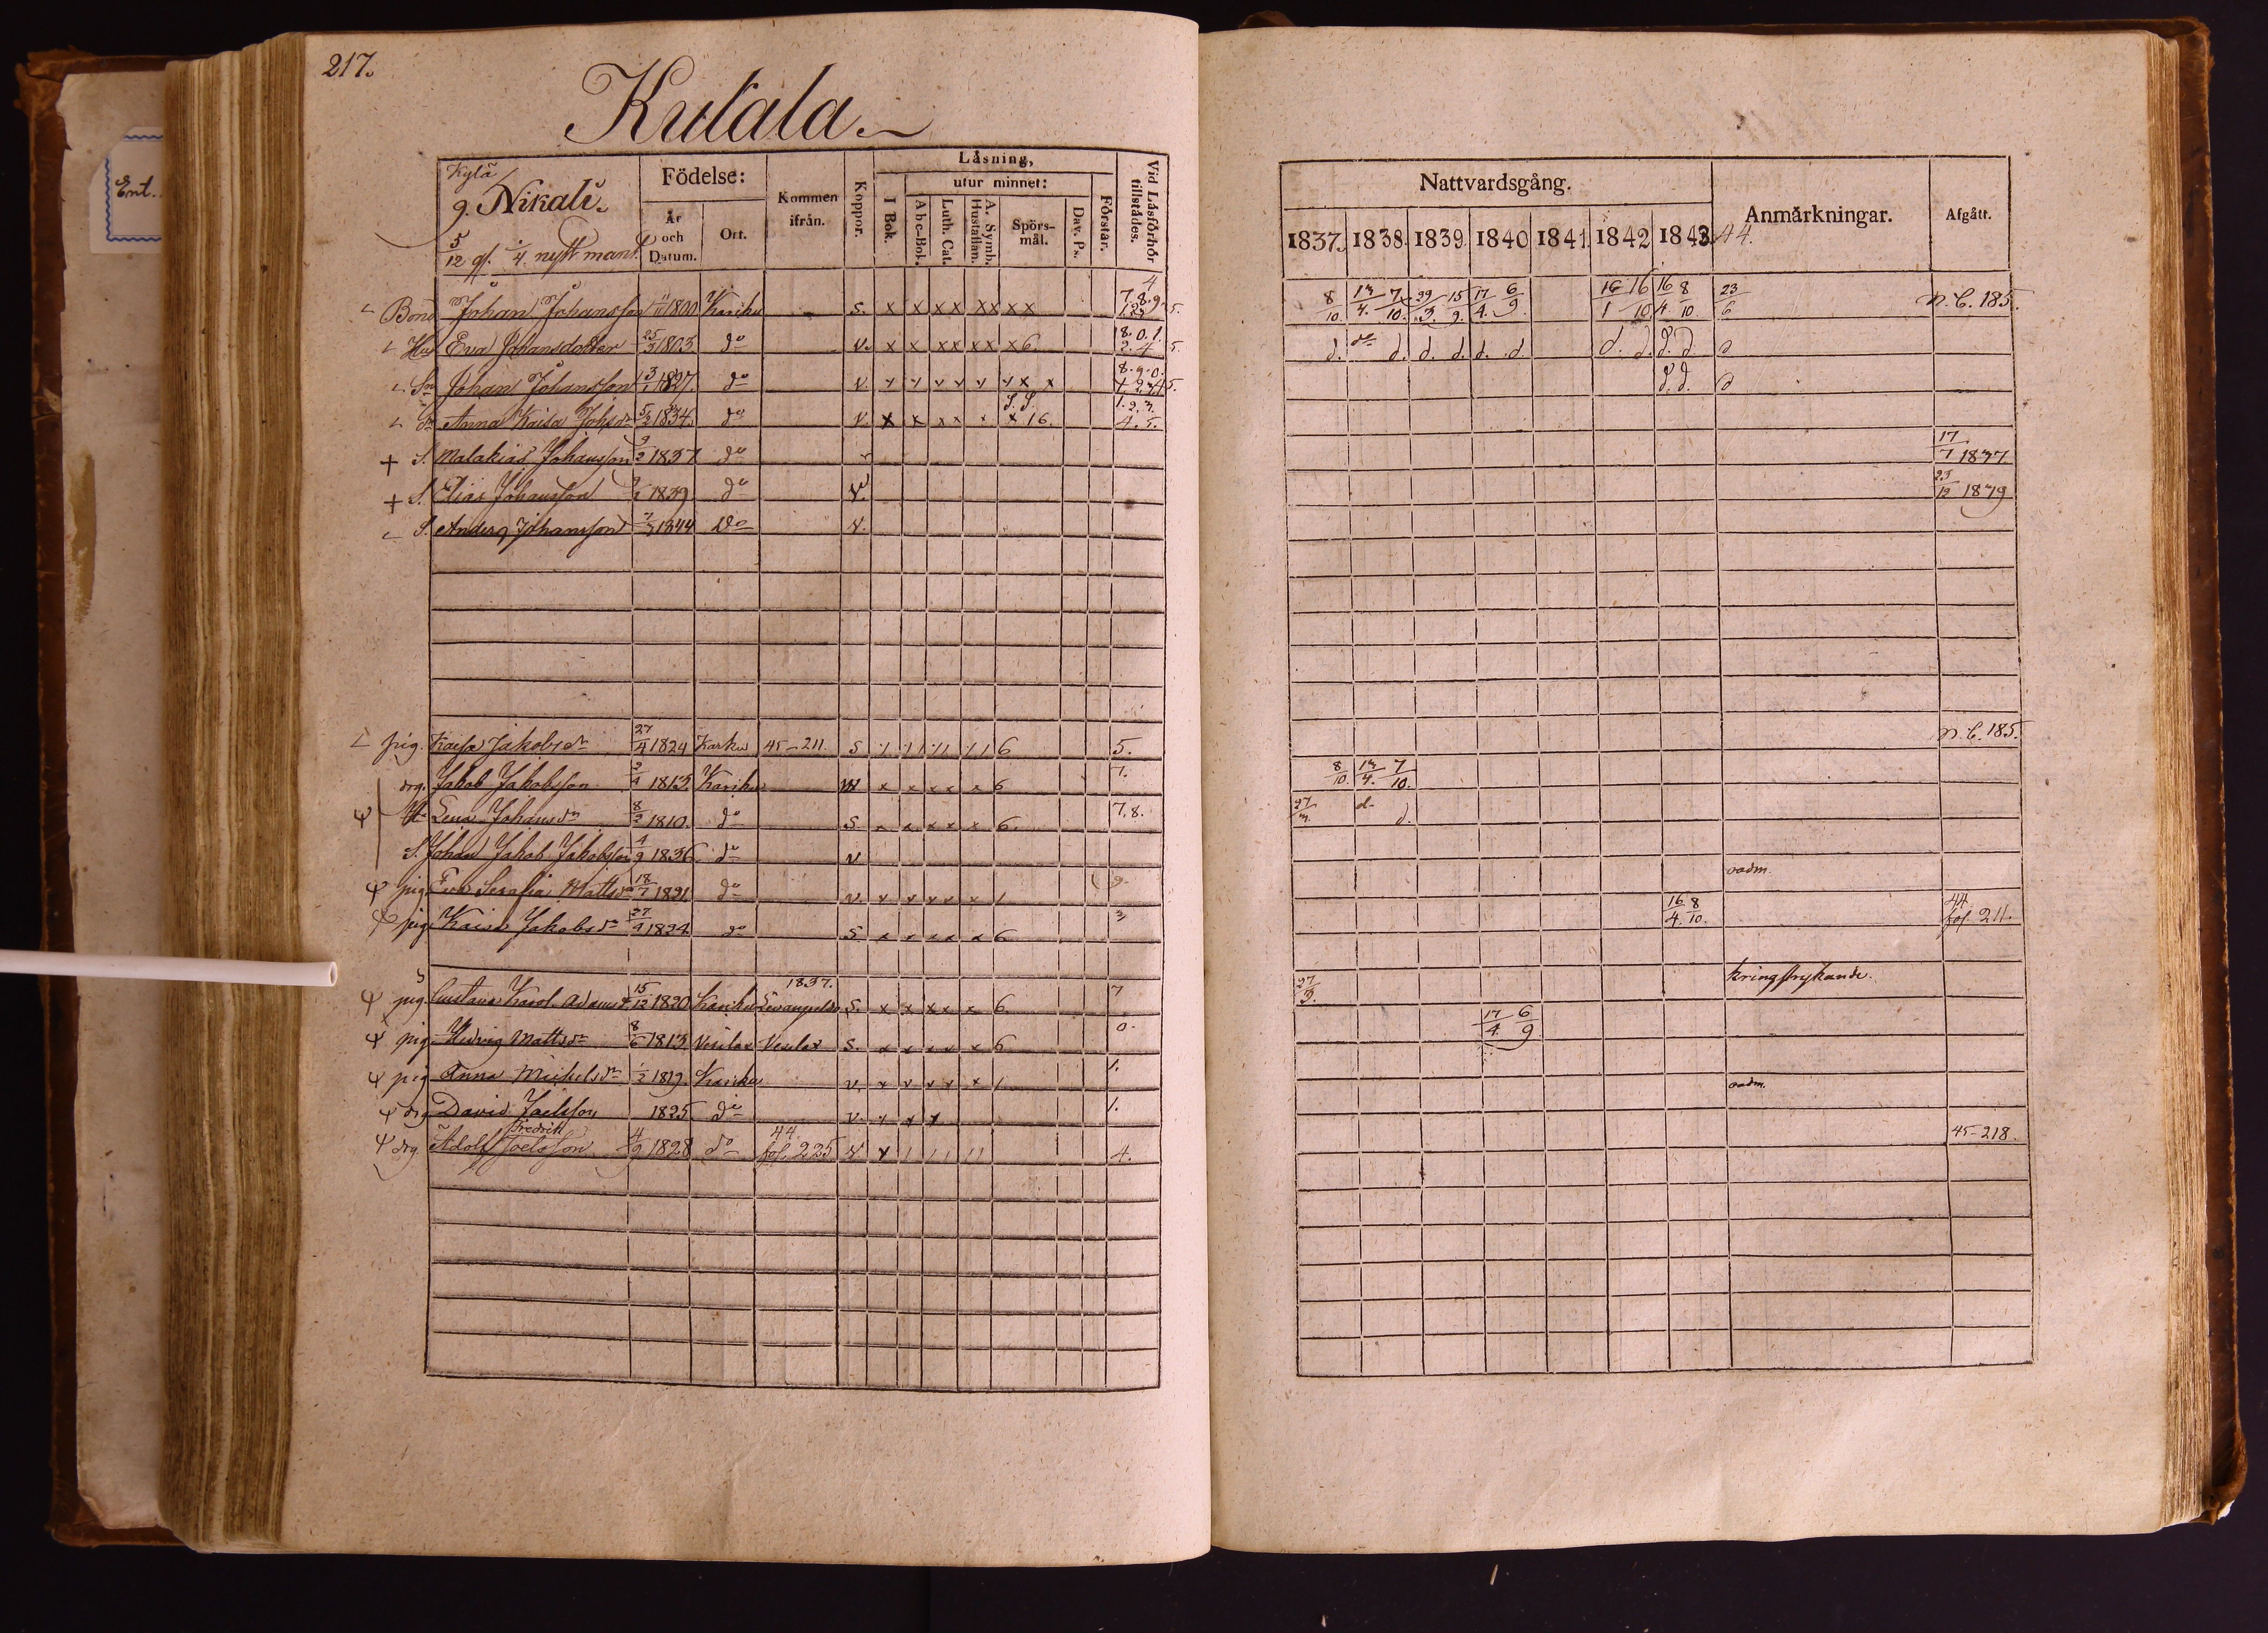 Ent.
217.
Kutala.
Kylä
9. Nikali.
5/12 gl. 1/4 nytt mant.
Födelse:
År och Datum.
Ort.
Kommen ifrån.
Koppor.
Läsning,
I Bok.
utur minnet:
A b c-Bok.
Luth. Cat.
A. Symb. Hustaflan.
Spörsmål.
Dav. Ps.
Förstår.
Vid Läsförhör tillstädes.
Nattvardsgång.
1837. 1838. 1839. 1840 1841. 1842 1843. 44.
Anmärkningar.
Afgått.
Bond Johan Johansson 1/11 1800 Kariku S. x x x x x x x x 8/10 13/4 7/10 17/4 6/9 16/10 16/4 8/10 23/6 n. C. 185.
Hu Eva Johansdotter 25/3 1803 do V. x x x x x x x 6 8. 0. 1. 2. 4 5. d. do d. d. d. d. d. d. d. d. d. d
Sn Johan Johansson 13/1 1827. do V. 8. 9. 0. d. d. d
Dr Anna Kaisa Johsdr 5/2 1834. do V. x x x x x x 16. 1. 2. 3. 4. 5.
+ S. Malakias Johansson 1837 do 17/7 1837.
+ S. Elias Johansson 1839 do V. 23/12 1839
S. Anders Johansson 1844 do V.
pig. Kaisa Jakobsdr 27/4 1824 Karku 45-211. S 6 5. n. C. 185.
drg. Jakob Jakobsson 1813. Kariku x x x x x 6 7. 8/10. 13/4. 7/10.
Lena Johansdr 8/2 1810. do S x x x x x 6. 7. 8. 27/3. d. d.
S. Johan Jakob Jakobsson 4/9 1836. do v
pig Eva Serafia Mattsdr 18/7 1821. do v. 1 9. oadm.
pig Kaisa Jakobsdr 27/4 1824. do S x x x x x 6 3 16/4. 8/10. 44 fol. 211.
pig Gustava Karol. Adamsdr 15/12 1820. Kariku 1837. S. x x x x x 6. 7 27/3. kringstrykande.
pig Hedvig Mattsdr 8/6 1813. Vesilax Vesilax S. x x x x x 6 0. 17/4. 6/9
pig Anna Michelsdr 1/2 1819. Kariku v. 1 1. oadm.
drg David Joelsson 1825 do v. 1.
drg Adolf Fredrik Joelsson 4/9 1828 do 44. fol. 225 V 4. 45-218.